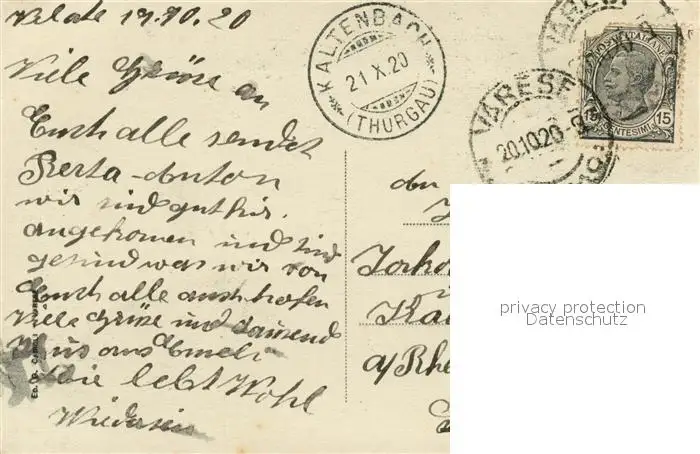 Velate 19.10.20
Viele Grüse an
Euch alle sendet
Berta - Anton
wir sind gut hir.
angekomen und sind
gesund was wir von
Euch alle auch hofen
Viele Grüse und dausend
Küss ans Emeli
Sie lebt Wohl
Wiedersein
KALTENBACH
21.X.20
(THURGAU)
VARESE
20.10.20
VARESE
POSTE ITALIANE
15 CENTESIMI 15
an
Ka
a/Rhe
privacy protection
Datenschutz